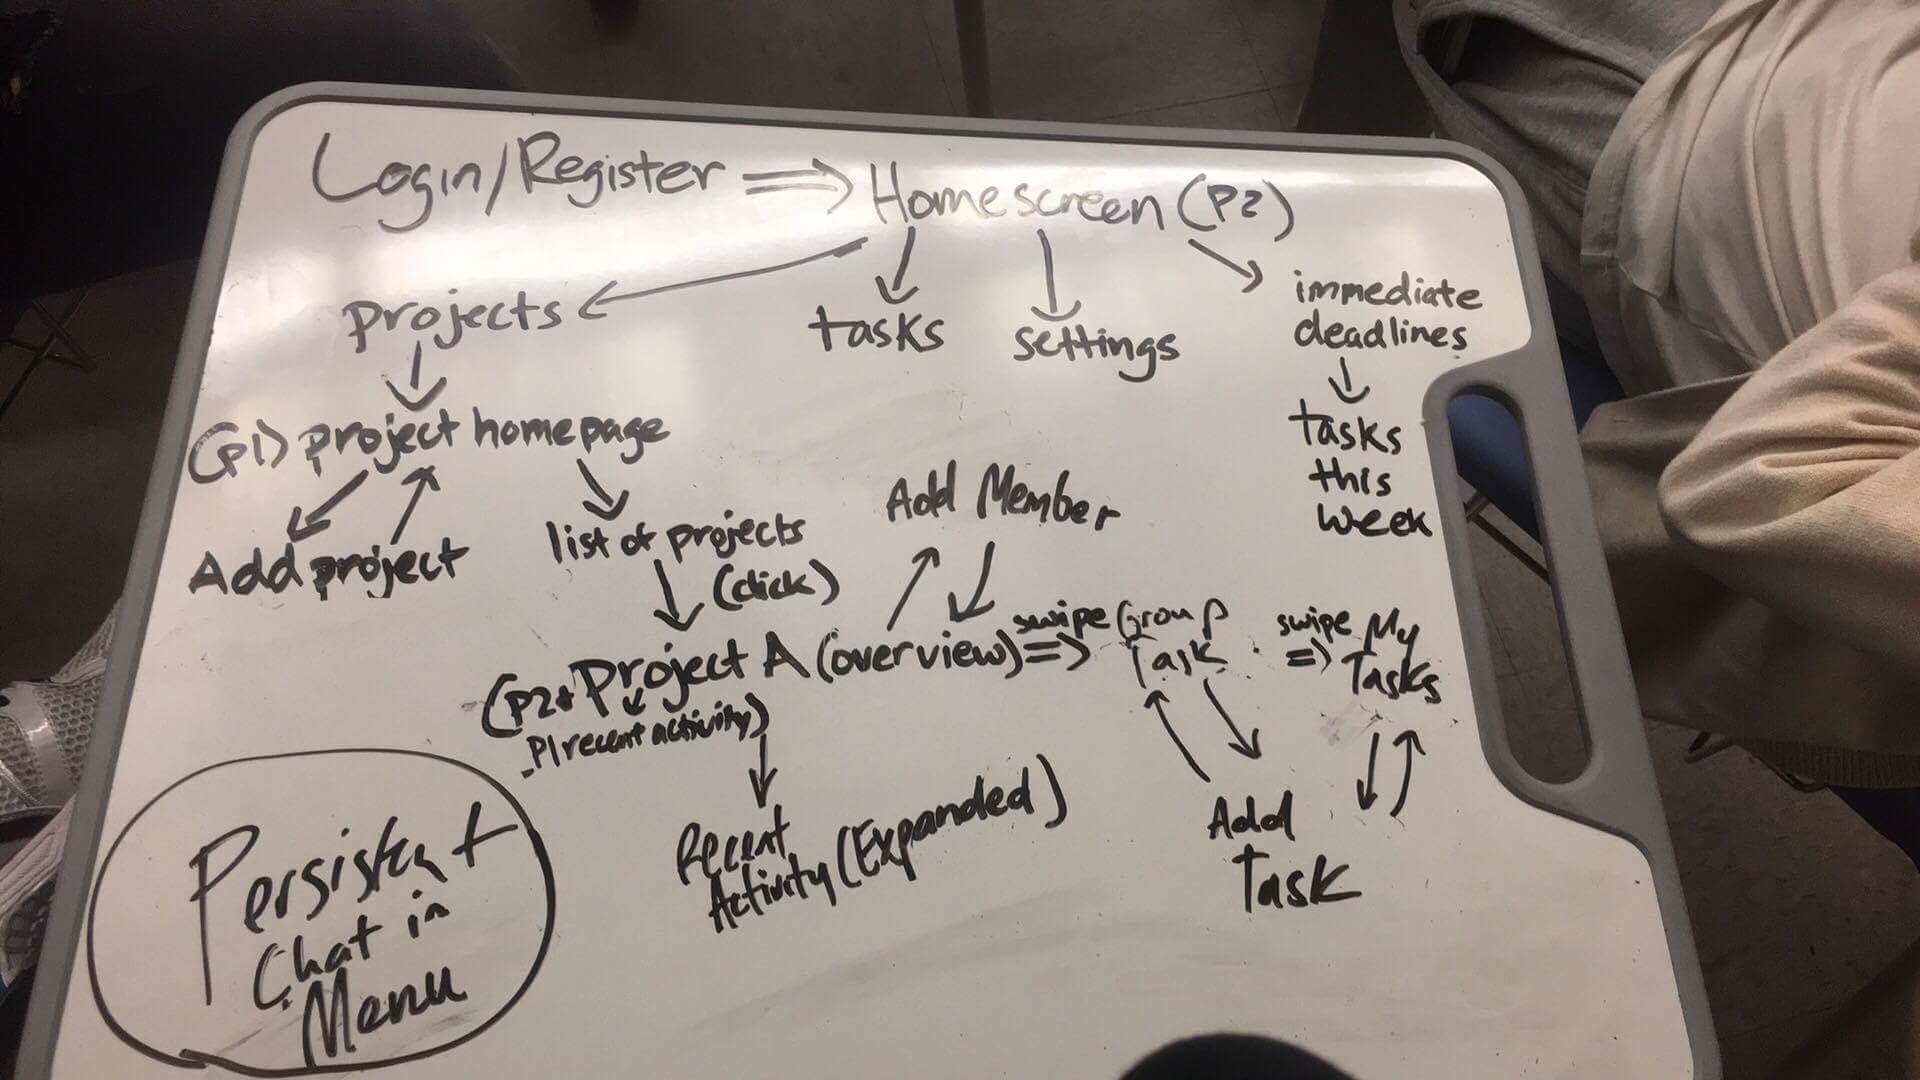 Login/Register ⇒ Homescreen (P2)
projects
tasks
settings
immediate
deadlines
tasks
this
week
(P1) project homepage
Add project
list of projects
(click)
Add Member
(P2+ Project A (overview) ⇒ swipe Group
Task
swipe ⇒ My
Tasks
P1 recent activity)
Recent
Activity (Expanded)
Add
Task
Persistent
Chat in
Menu